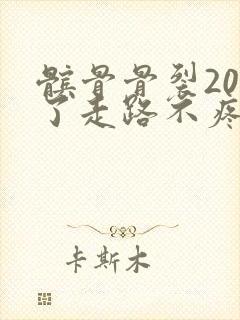 髌骨骨裂20
了走路不疼
卡斯木